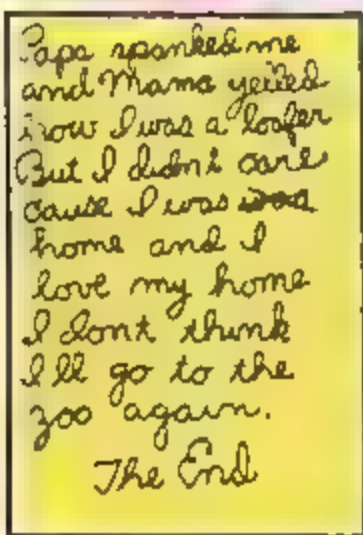 Papa spanked me
and Mama yelled
how I was a loafer
But I didnt care
cause I was
home and I
love my home
I dont think
I ll go to the
zoo again.
The End